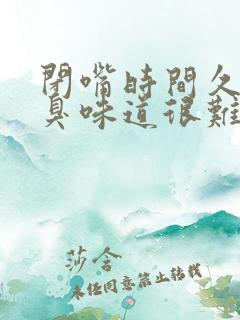 閉嘴時間久
臭味道很難
莎含
未經同意禁止轉載